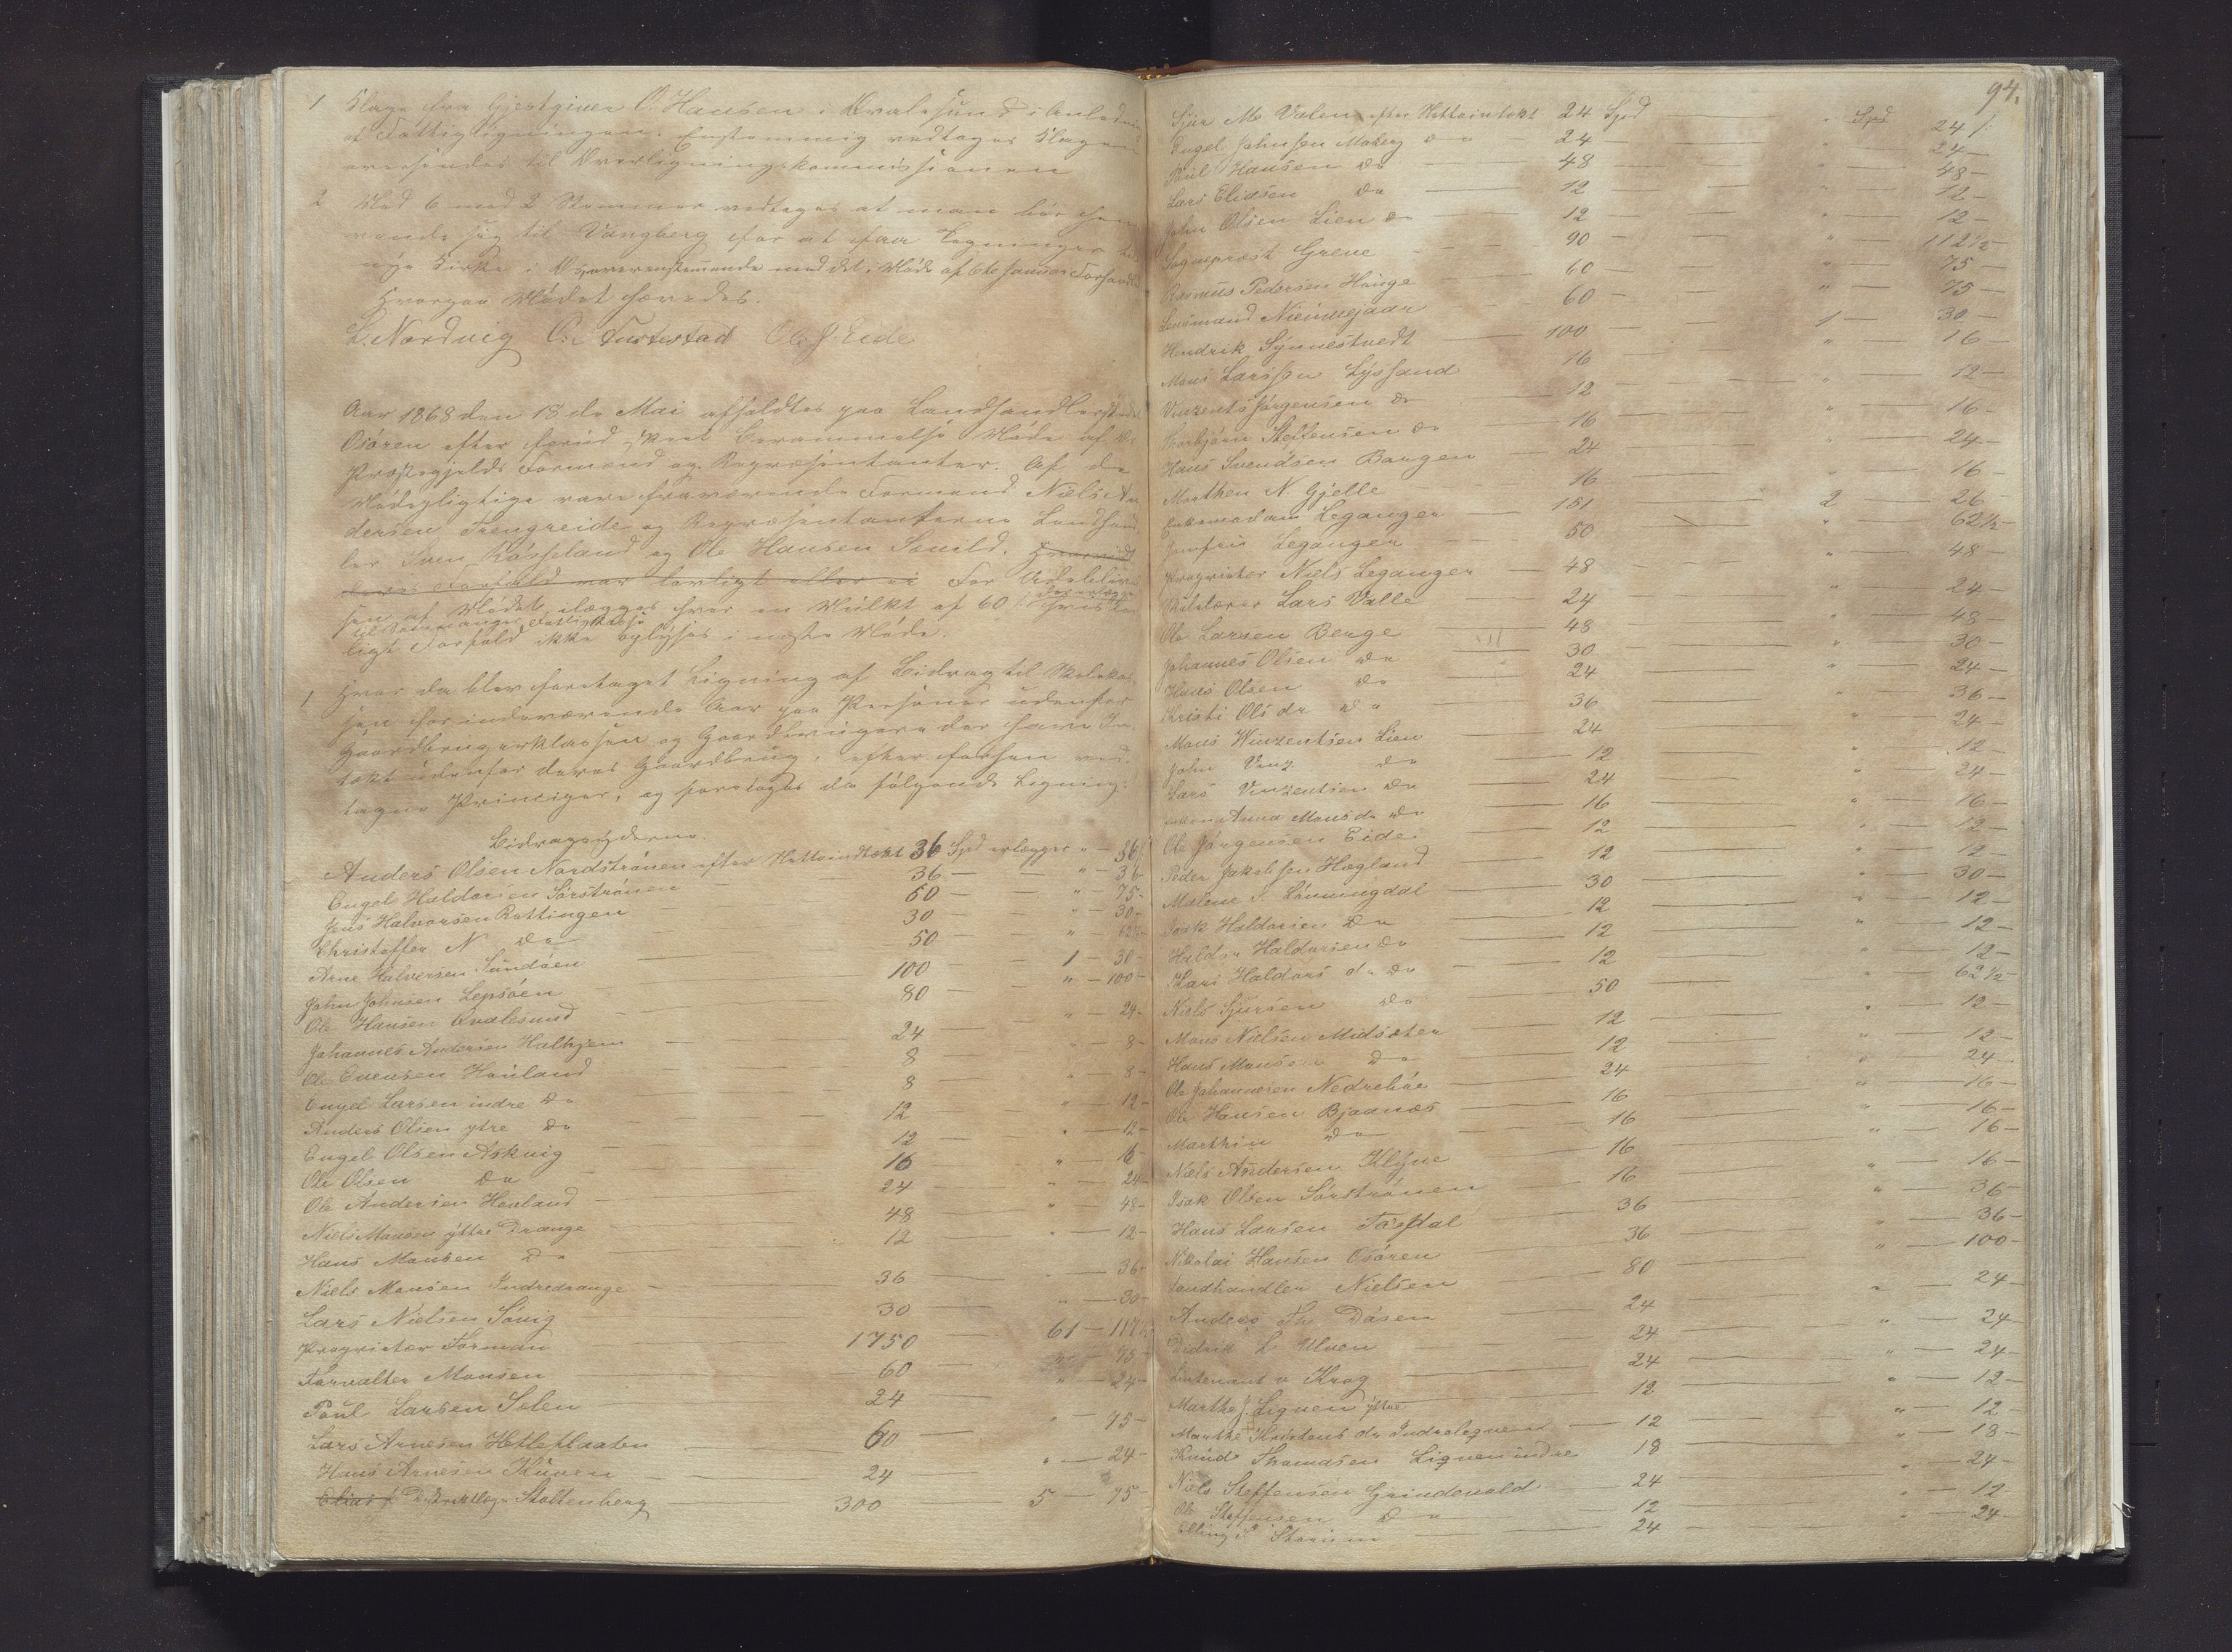 1 Klage fra Gjestgiver O. Hansen i Qvalesund i Anledning
af Fattigligningen. Enstemmig vedtoges Klagen
oversendes til Overligningskommissionen
2 Med 6 mod 2 Stemmer vedtoges at man bør hen
vende sig til Vangberg for at faa Tegninger til
nye Kirke i Overensstemmende med det i Møde af 6te Januar Forhandl
Hvorpaa Mødet hævedes.
L. Nordvig O. Tustestad Ole J. Eide
Aar 1868 den 18de Mai afholdtes paa Landhandlerstedet
Osøren efter forud skeet Berammelse Møde af Os
Præstegjelds Formænd og Repræsentanter. Af de
Mødepligtige vare fraværende Formand Niels An
dersen Trengereide og Repræsentanterne Landhand
ler Sven Røssland og Ole Hansen Sævild. Hvorvidt
deres Forfald var lovligt eller ei For Udeblivel
sen af Mødet ilægges hver en Mulkt af 60 s: hvis lov
til Fattigkasse
ligt Forfald ikke oplyses i næste Møde.
1 Hvor da blev foretaget Ligning af Bidrag til Skolekas
sen for indeværende Aar paa Personer udenfor
Gaardbrugerklassen og Gaardbrugere der have Ind
tækt udenfor deres Gaardbrug, efter forhen ved
tagne Principer, og foretoges da følgende Ligning:
Bidragsyderne.
Anders Olsen Nordstrønen efter Nettoindtækt 36 Spd erlægger " — 36
Engel Haldorsen Sørstrønen 36 — " — 36
Jens Halvorsen Rottingen 60 — " — 75-
Christoffer N do 30 — " — 30-
Arne Halvorsen Sundøen 50 — " — 62½
John Johnsen Lepsøen 100 — 1 — 30-
Ole Hansen Qvalesund 80 — " — 100-
Johannes Andersen Halhjem 24 — " — 24-
Ole Evensen Hauland 8 — " — 8-
Engel Larsen indre do 8 — " — 8-
Anders Olsen ytre do 12 — " — 12-
Engel Olsen Askvig 12 — " — 12-
Ole Olsen do 16 — " — 16-
Ole Andersen Hauland 24 — " — 24-
Niels Monsen yttre Drange 48 — " — 48-
Hans Monsen do 12 — " — 12-
Niels Monsen Indredrange 36 — " — 36-
Lars Nielsen Søvig 30 — " — 30-
Proprietær Forman 1750 — 61 — 117½
Forvalter Monsen 60 — " — 75-
Poul Larsen Solen 24 — " — 24-
Lars Arnesen Hetleflaaten 60 — " — 75-
Hans Arnesen Kuven 24 — " — 24-
Elias Distriktlæge Stoltenberg 300 — 5 — 75-
94.
Sjur M. Valen efter Nettointekt 24 Spd — " Spd 24 s:
Engel Johnsen Moberg do 24 — " — 24
Poul Hansen do 48 — " — 48-
Lars Eliasen do 12 — " — 12-
John Olsen Lien do 12 — " — 12-
Sognepræst Greve 90 — " — 112½-
Rasmus Pedersen Hauge 60 — " — 75-
Lensmand Nummejaar 60 — " — 75-
Hendrik Synnestvedt 100 — 1 — 30-
Mons Larssen Lyssand 16 — " — 16-
Vinzents Jørgensen do 12 — " — 12-
Torbjørn Steffensen do 16 — " — 16-
Hans Svendsen Bergen 24 — " — 24-
Marthen N. Gjelle 16 — " — 16-
Enkemadam Leganger 151 — 2 — 26-
Jomfru Leganger 50 — " — 62½-
Proprietær Niels Leganger 48 — " — 48-
Skolelærer Lars Valle 24 — " — 24-
Ole Larsen Berge 48 — " — 48-
Johannes Olsen do 30 — " — 30-
Hans Olsen do 24 — " — 24-
Kristi Ols dr do 36 — " — 36-
Mons Winzentsen Lien 24 — " — 24-
John Vinz. do 12 — " — 12-
Lars Vinzentsen do 24 — " — 24-
Anna Mons dr do 16 — " — 16-
Ole Jørgensen Eide 12 — " — 12-
Peder Jakobsen Hegland 12 — " — 12-
Malene I. Lønningdal 30 — " — 30-
Isak Haldorsen do 12 — " — 12-
Haldor Haldorsen do 12 — " — 12-
Kari Haldors dr do 12 — " — 12-
Niels Sjursen do 50 — " — 62½-
Mons Nielsen Midsæter 12 — " — 12-
Hans Monsen do 12 — " — 12-
Ole Johannesen Nedrebøe 24 — " — 24-
Ole Hansen Bjaanæs 16 — " — 16-
Marthin do 16 — " — 16-
Niels Andersen Klyve 16 — " — 16-
Isak Olsen Sørstrønen 16 — " — 16-
Hans Larsen Tøsdal 36 — " — 36-
Nikolai Hansen Osøren 36 — " — 36-
Landhandler Nielsen 80 — " — 100-
Anders Th. Døsen 24 — " — 24-
Didrik L. Ulven 24 — " — 24-
Lieutenant v. Krog 24 — " — 24-
Marthe J. Liqven yttre 12 — " — 12-
Marthe Kristens dr Indreleqven 12 — " — 12-
Knud Thomassen Liqven indre 18 — " — 18-
Niels Steffensen Grindevold 24 — " — 24-
Ole Steffensen do 12 — " — 12-
Elling S. Storum 24 — " — 24-